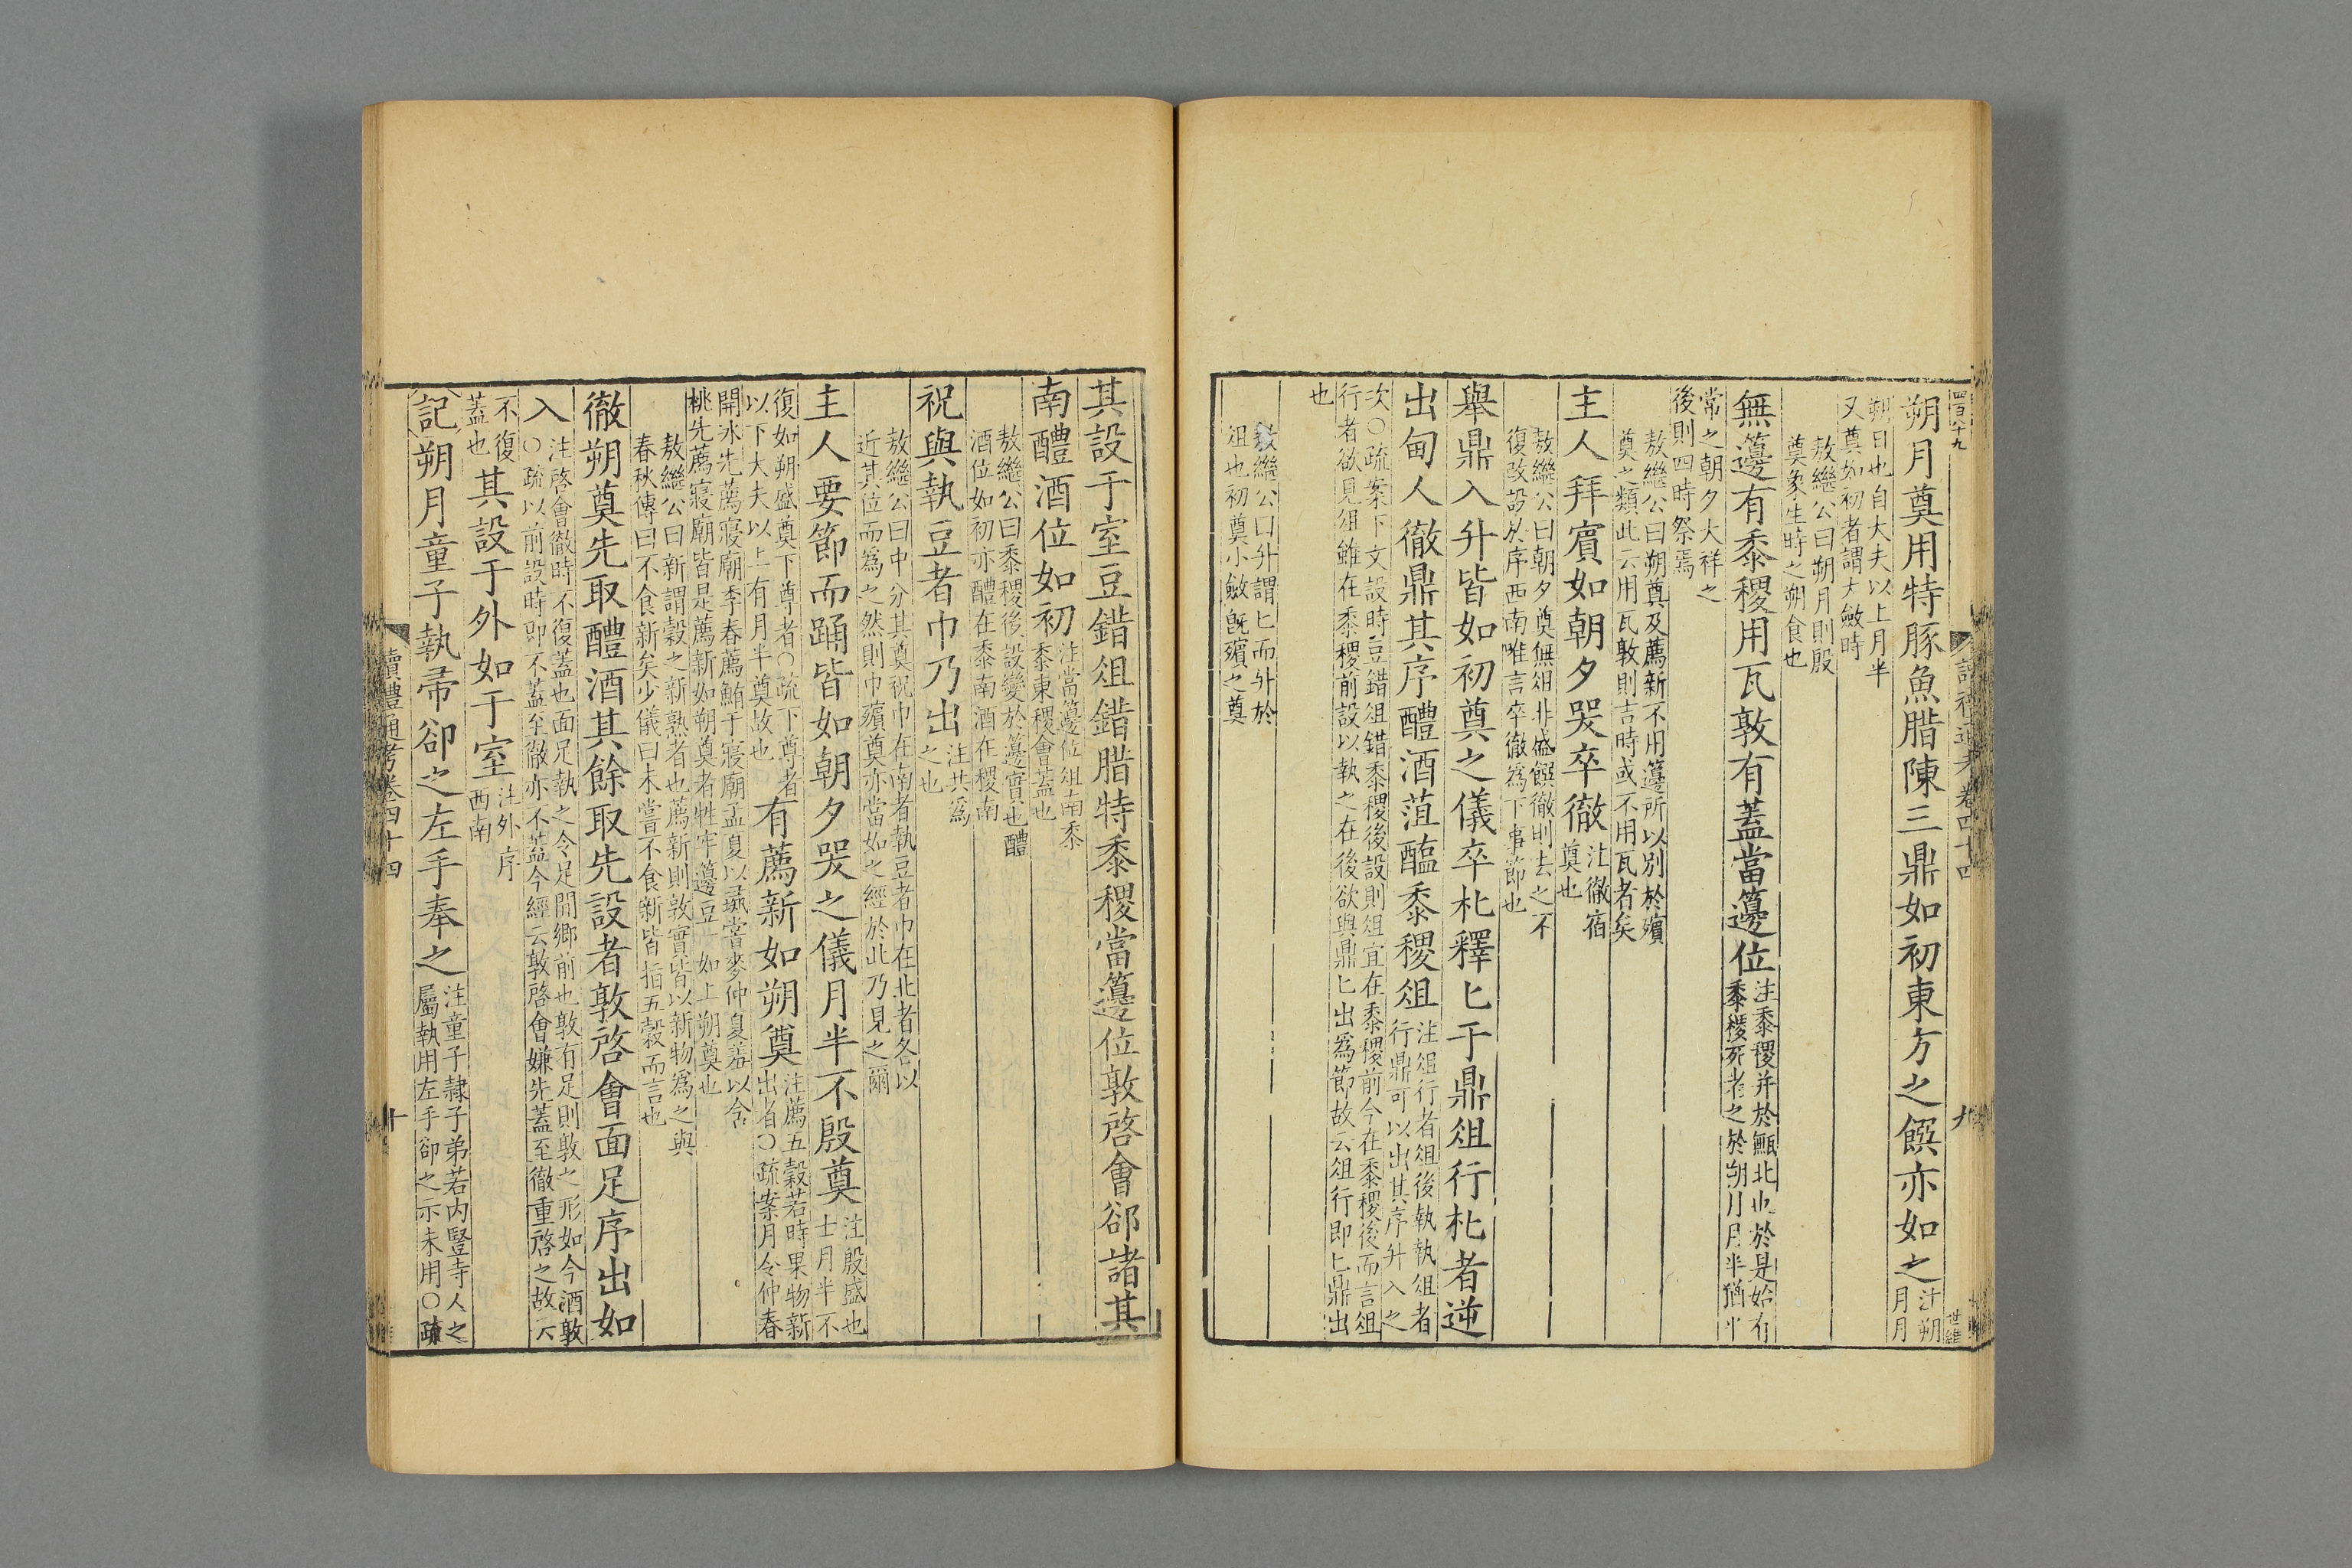 四百六十九
朔月奠用特豚魚腊陳三鼎如初東方之饌亦如之注朔月月
朔日也自大夫以上月半
又奠如初者謂大斂時
敖繼公曰朔月則殷
奠象生時之朔食也
無籩有黍稷用瓦敦有蓋當籩位注黍稷并於甒北也於是始有
黍稷死者之於朔月月半猶平
常之朝夕大祥之
後則四時祭焉
敖繼公曰朔奠及薦新不用籩所以別於殯
奠之類此云用瓦敦則吉時或不用瓦者矣
主人拜賓如朝夕哭卒徹注徹宿
奠也
敖繼公曰朝夕奠無俎非盛饌徹則去之不
復改設於序西南唯言卒徹為下事節也
舉鼎入升皆如初奠之儀卒朼釋匕于鼎俎行朼者逆
出甸人徹鼎其序醴酒菹醢黍稷俎注俎行者俎後執執俎者
行鼎可以出其序升入之
次○疏案下文設時豆錯俎錯黍稷後設則俎宜在黍稷前今在黍稷後而言俎
行者欲見俎雖在黍稷前設以執之在後欲與鼎匕出為節故云俎行即匕鼎出
也
敖繼公曰升謂匕而升於
俎也初奠小斂既殯之奠
九
世維
其設于室豆錯俎錯腊特黍稷當籩位敦啓會郤諸其
南醴酒位如初注當籩位俎南黍
黍東稷會蓋也
敖繼公曰黍稷後設變於籩實也醴
酒位如初亦醴在黍南酒在稷南
祝與執豆者巾乃出注共為
之也
敖繼公曰中分其奠祝巾在南者執豆者巾在北者各以
近其位而為之然則巾殯奠亦當如之經於此乃見之爾
主人要節而踊皆如朝夕哭之儀月半不殷奠注殷盛也
士月半不
復如朔盛奠下尊者○疏下尊者
以下大夫以上有月半奠故也有薦新如朔奠注薦五穀若時果物新
出者○疏案月令仲春
開冰先薦寢廟季春薦鮪于寢廟孟夏以彘嘗麥仲夏羞以含
桃先薦寢廟皆是薦新如朔奠者牲牢籩豆一如上朔奠也
敖繼公曰新謂穀之新熟者也薦新則敦實皆以新物為之與
春秋傳曰不食新矣少儀曰未嘗不食新皆指五穀而言也
徹朔奠先取醴酒其餘取先設者敦啓會面足序出如
入注啓會徹時不復蓋也面足執之令足間鄉前也敦有足則敦之形如今酒敦
○疏以前設時即不蓋至徹亦不蓋今經云敦啓會嫌先蓋至徹重啓之故云
不復
蓋也其設于外如于室注外序
西南
記朔月童子執帚卻之左手奉之注童子隸子弟若內豎寺人之
屬執用左手卻之示未用○疏
讀禮通考卷四十四
十